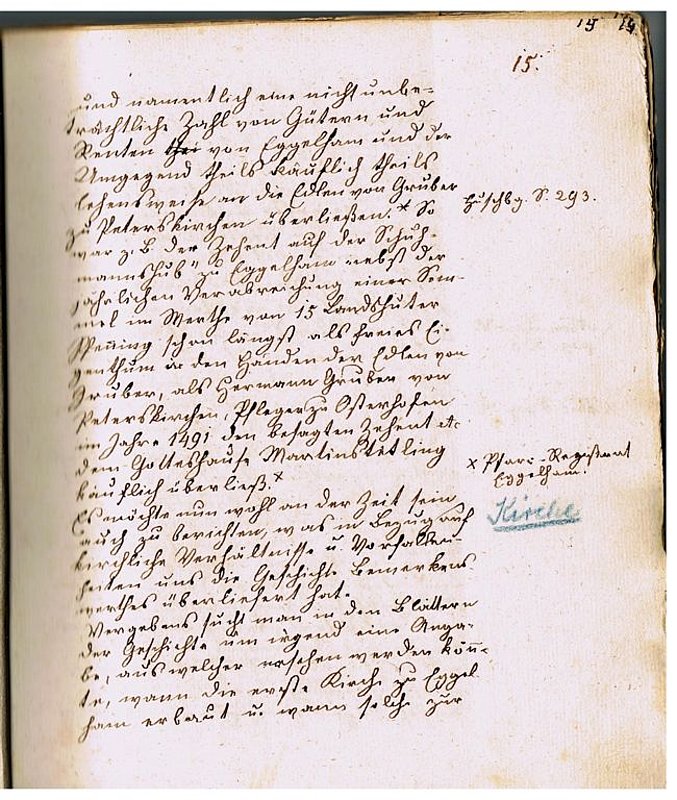 15 15
15.
und namentlich eine nicht unbe=
trächtliche Zahl von Gütern und
Renten von Eggelham und der
Umgegend theils käuflich theils
lehensweise an die Edlen von Gruber
zu Peterskirchen überließen.* So
war z. B. der Zehent auf der Schuh-
mannshub" zu Eggelham nebst der
jährlichen Verabreichung einer Sem-
mel im Werthe von 15 Landshuter
Pfenning schon längst als freies Ei-
genthum in den Händen der Edlen von
Gruber, als Hermann Gruber von
Peterskirchen, Pfleger zu Osterhofen
im Jahre 1491 den besagten Zehent etc
dem Gotteshause Martinstetling
käuflich überließ.x
Es möchte nun wohl an der Zeit sein
auch zu berichten, was in Bezug auf
kirchliche Verhältnisse u. Vorfallen-
heiten uns die Geschichte Bemerkens
werthes überliefert hat.
Vergebens sucht man in den Blättern
der Geschichte um irgend eine Anga-
be, aus welcher ersehen werden könn-
te, wann die erste Kirche zu Eggel
ham erbaut u. wann solche zur
Huschbg. S. 293.
x Pfarr-Registrat
Eggelham.
Kirche